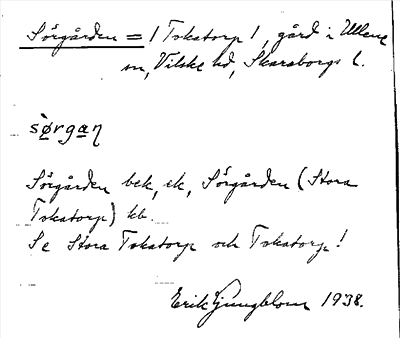 Sörgården = 1 Tokatorp 1, gård i Ullene
sn, Vilske hd, Skaraborgs l.
sørgan
Sörgården bek, ek, Sörgården (Stora
Tokatorp) kb.
Se Stora Tokatorp och Tokatorp!
Erik Ljungblom 1938.